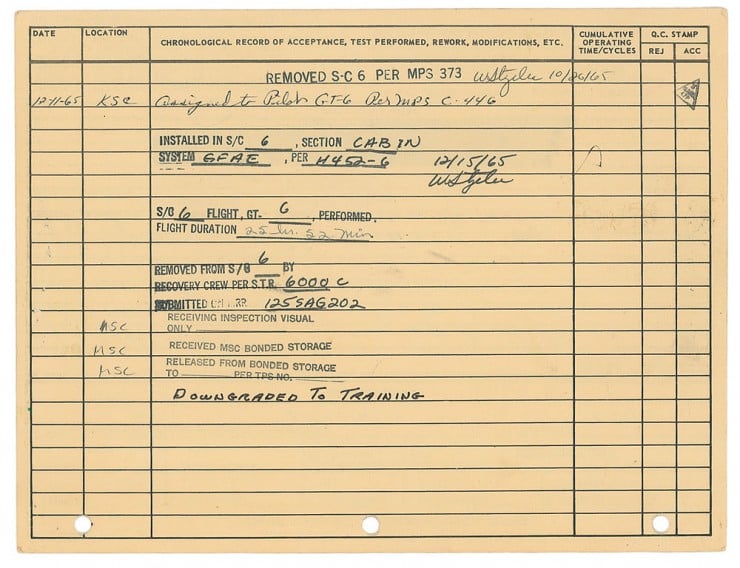 DATE LOCATION CHRONOLOGICAL RECORD OF ACCEPTANCE, TEST PERFORMED, REWORK, MODIFICATIONS, ETC. CUMULATIVE OPERATING TIME/CYCLES Q.C. STAMP
REJ ACC
REMOVED S-C 6 PER MPS 373 10/26/65
12-11-65 KSC Assigned to Pilot GT-6 Per MPS C-446
INSTALLED IN S/C 6, SECTION CABIN
SYSTEM GFAE, PER H452-6 12/15/65
S/C 6 FLIGHT, GT- 6, PERFORMED.
FLIGHT DURATION 25 hr. 52 min
REMOVED FROM S/C 6 BY
RECOVERY CREW PER S.T.R. 6000 C
SUBMITTED ON 125SAG202
RECEIVING INSPECTION VISUAL
MSC ONLY
MSC RECEIVED MSC BONDED STORAGE
RELEASED FROM BONDED STORAGE
MSC TO PER TPS NO.
DOWNGRADED TO TRAINING